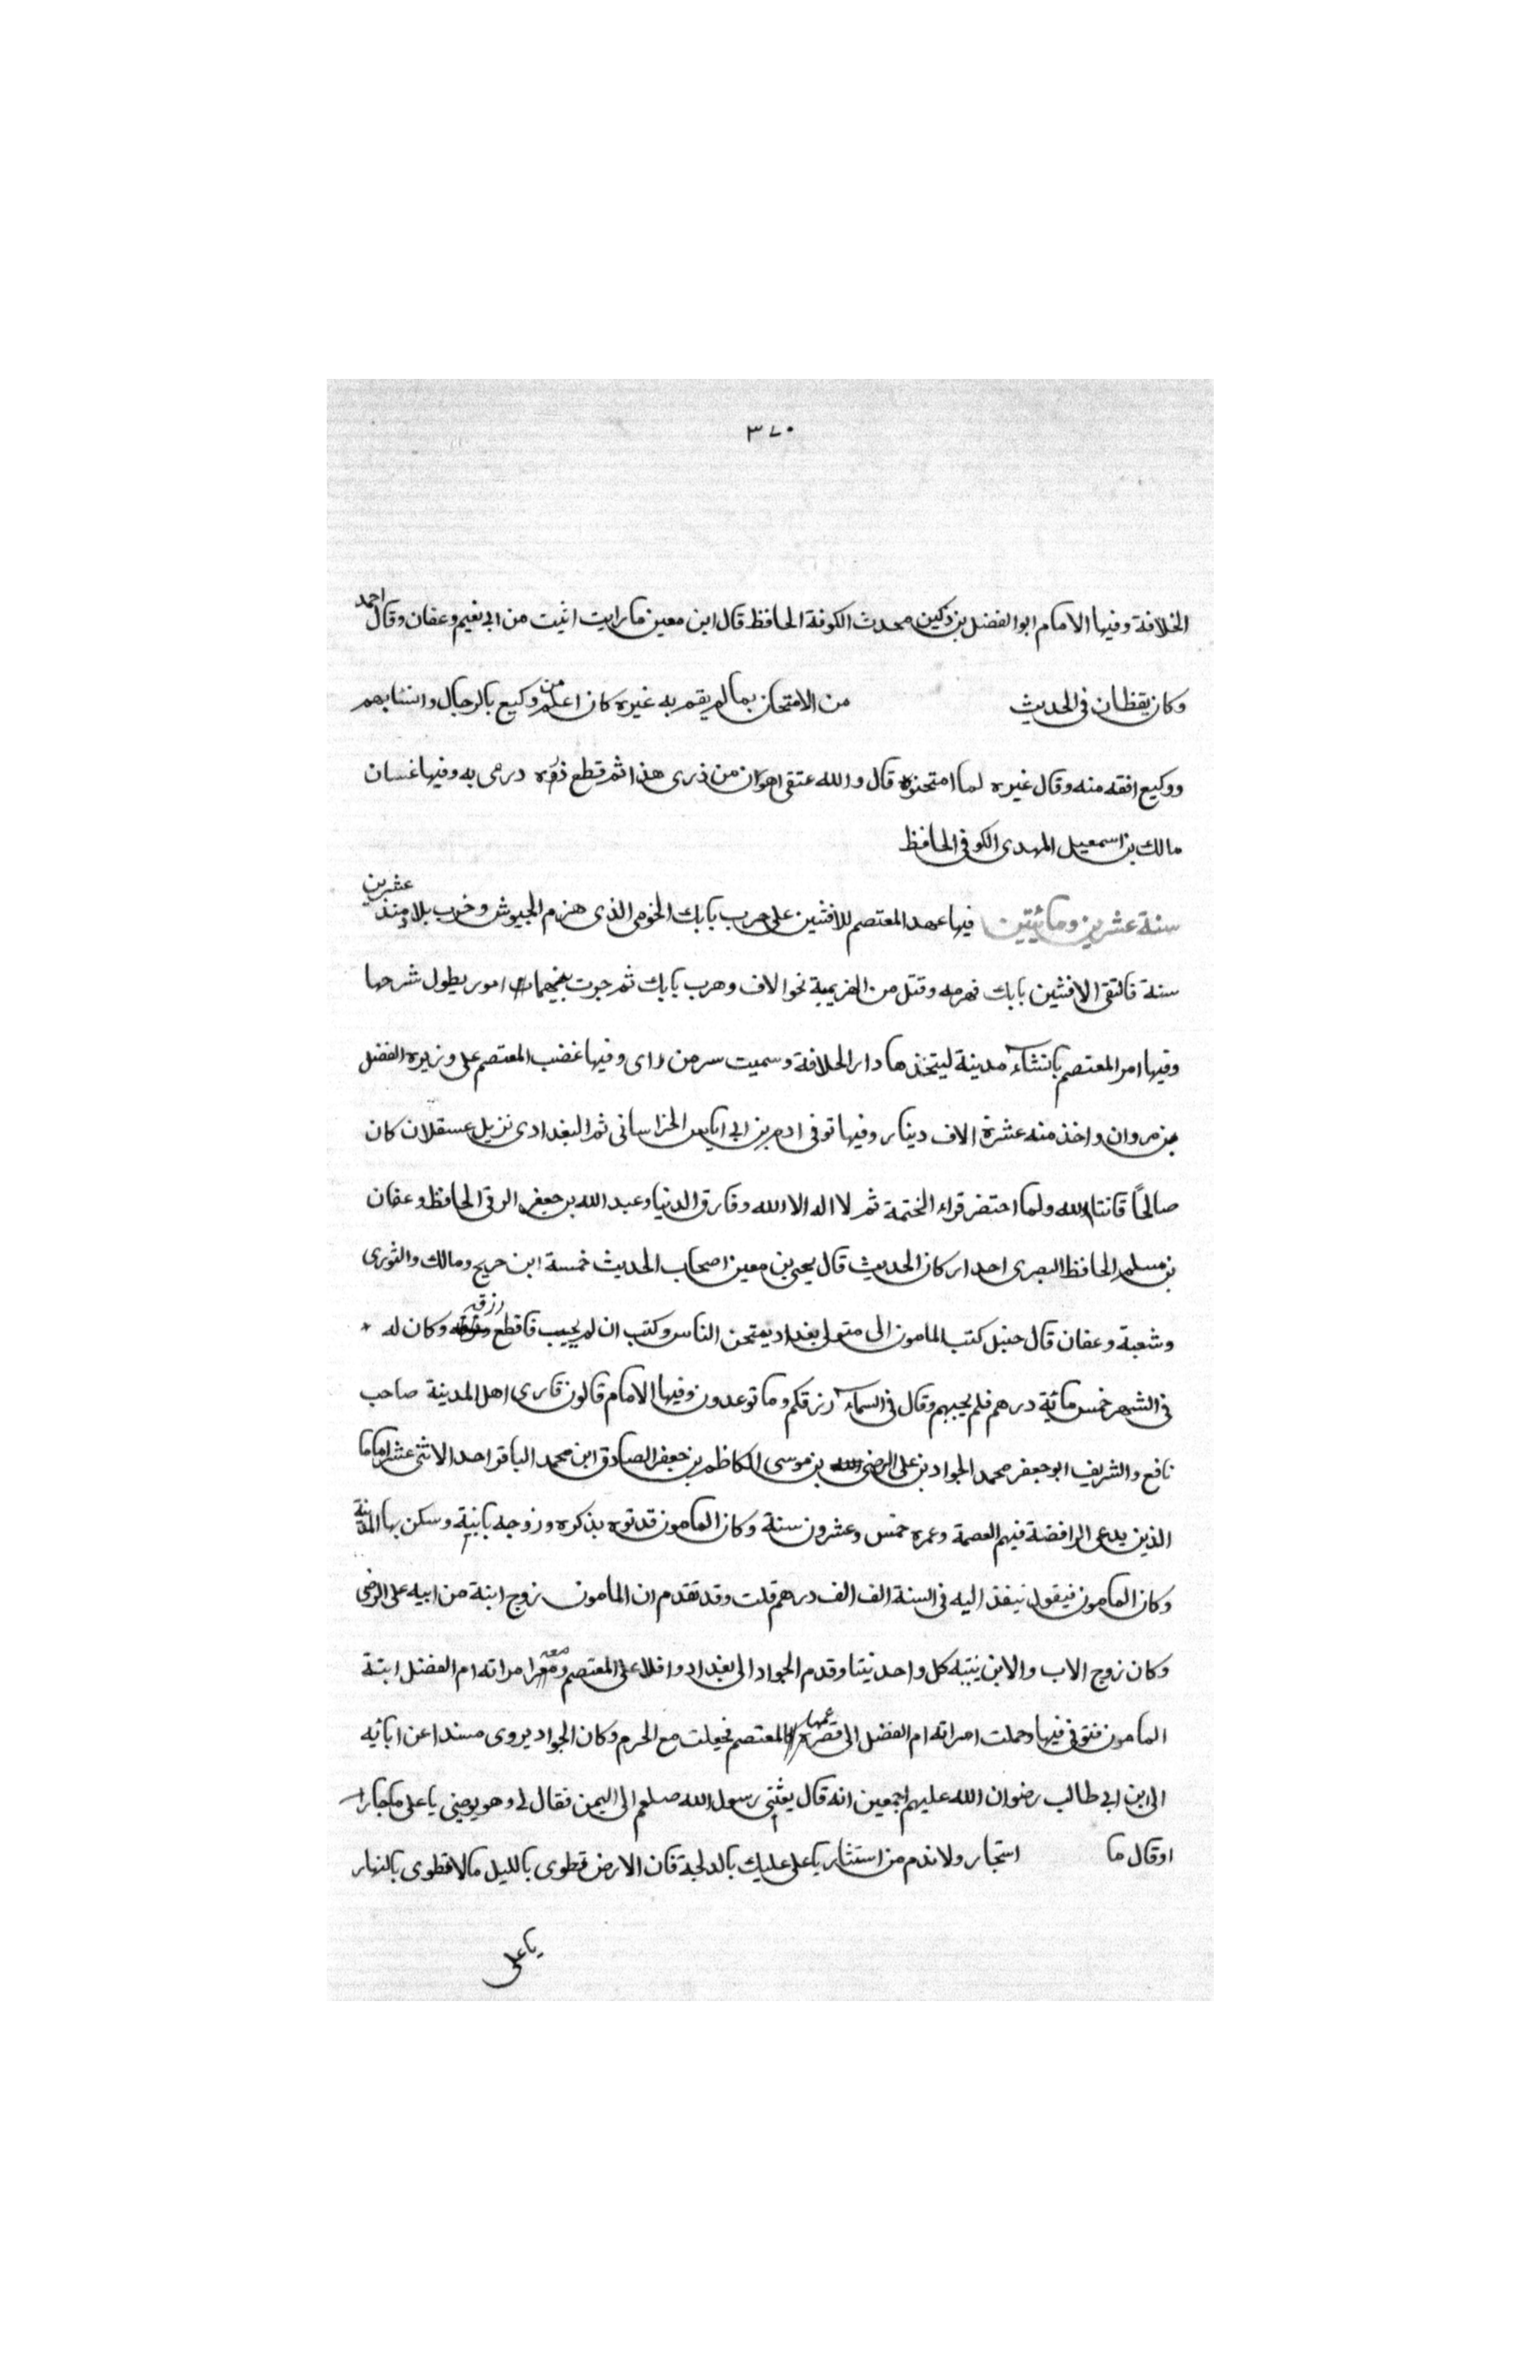 ٣٧٠
الخلافة وفيها الامام ابو الفضل بن دكين محدث الكوفة الحافظ قال ابن معين ما رايت اثبت من ابى نعيم وعفان وقال احمد
وكان يقظان فى الحديث من الامتحان بما لم يقم به غيره كان اعلم من وكيع بالرجال وانسابهم
ووكيع افقه منه وقال غيره لما امتحنوه قال والله عتقى اهوان من ذرى هذا ثم قطع ذره درمى به وفيها غسان
مالك بن اسمعيل المهدى الكوفى الحافظ
سنة عشرين ومائيتين فيها عهد المعتصم للافشين على حرب بابك الخومى الذى هزم الجيوش وخرب بلاد منذ عشرين
سنة فالتقى الافشين بابك فهزمه وقتل من الخزيمية نحو الاف وهرب بابك ثم جرت بينهما امور يطول شرحها
وفيها امر المعتصم بانشاء مدينة ليتخذها دار الخلافة وسميت سر من راى وفيها غضب المعتصم على وزيره الفضل
بن مروان واخذ منه عشرة الاف دينار وفيها توفى ادم بن ابى اياس الخراسانى ثم البغدادى نزيل عسقلان كان
صالحاً قانتا لله ولما احتضر قراء الختمة ثم لا اله الا الله وفارق الدنيا وعبد الله بن جعفر الرقى الحافظ وعفان
بن مسلم الحافظ البصرى احد اركان الحديث قال يحيى بن معين اصحاب الحديث خمسة ابن جريج ومالك والثورى
وشعبة وعفان قال حنبل كتب المامون الى متولى بغداد يمتحن الناس وكتب ان لم يجيب فاقطع رزقه وكان له
فى الشهر خمس مائة درهم فلم يجبهم وقال فى السماء رزقكم وما توعدون وفيها الامام قالون قارى اهل المدينة صاحب
نافع والشريف ابو جعفر محمد الجواد بن على الرضى بن موسى الكاظم بن جعفر الصادق ابن محمد الباقر احد الاثنى عشر اماما
الذين يدعى الرافضة فيهم العصمة وعمره خمس وعشرون سنة وكان المامون قد نوه بذكره وزوجه بابنية وسكن بها المدينة
وكان المامون فيقول ينفذ اليه فى السنة الف الف درهم قلت وقد تقدم ان المامون زوج ابنة من ابيه على الرضى
وكان زوج الاب والابن بنتيه كل واحد بنتا وقدم الجواد الى بغداد وافدا على المعتصم ومعه امراته ام الفضل ابنة
المامون فتوفى فيها وحملت امراته ام الفضل الى قصر عمها المعتصم فجعلت مع الحرم وكان الجواد يروى مسندا عن ابائه
الى ابن ابى طالب رضوان الله عليهم اجمعين انه قال بعثنى رسول الله صلعم الى اليمن فقال لى وهو يوصينى يا على ما جار
او قال ما استجار ولا ندم من استشار يا على عليك بالدلجة فان الارض تطوى بالليل ما لا تطوى بالنهار
يا على